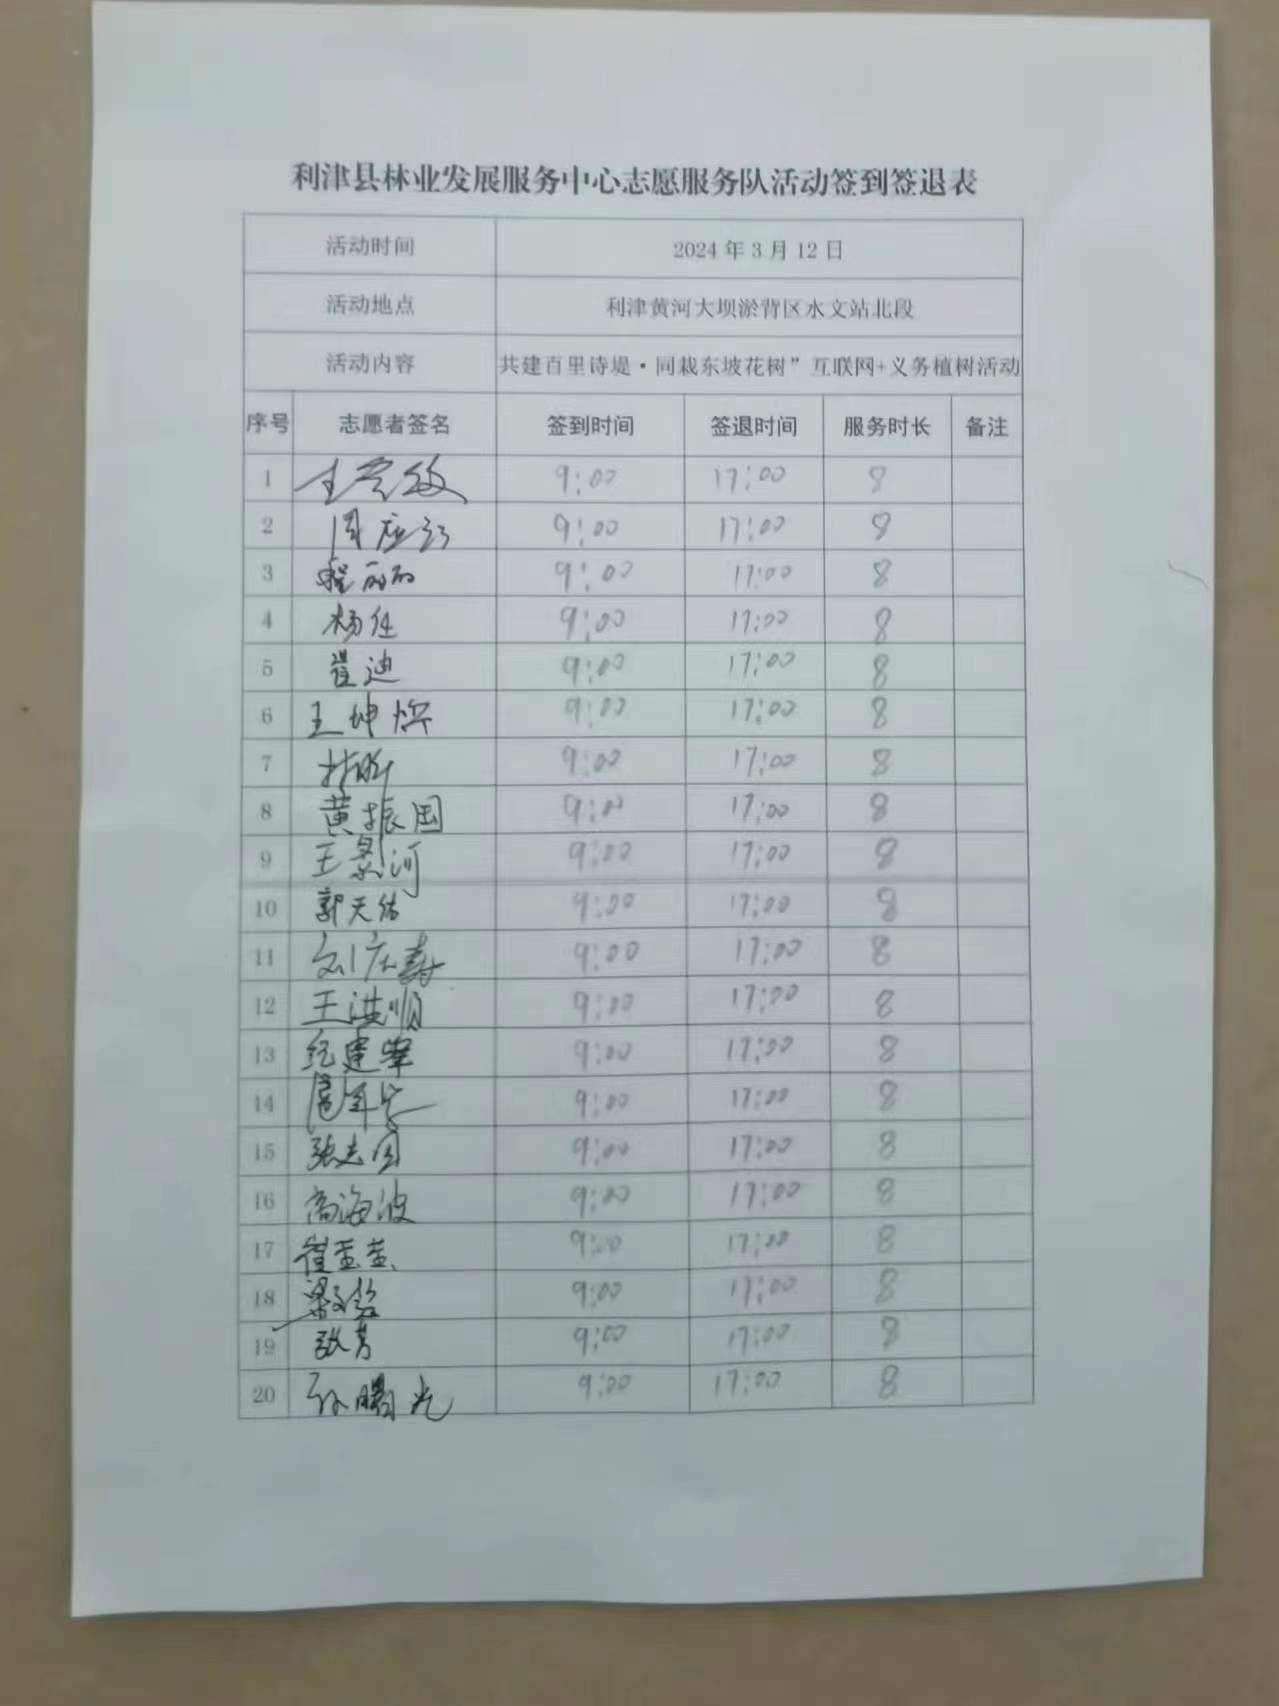 利津县林业发展服务中心志愿服务队活动签到签退表
活动时间 2024 年 3 月 12 日
活动地点 利津黄河大坝淤背区水文站北段
活动内容 共建百里诗堤·同栽东坡花树”互联网+义务植树活动
序号 志愿者签名 签到时间 签退时间 服务时长 备注
1 9:00 17:00 8
2 周 9:00 17:00 8
3 程丽丽 9:00 17:00 8
4 杨任 9:00 17:00 8
5 崔迪 9:00 17:00 8
6 王坤 9:00 17:00 8
7 9:00 17:00 8
8 黄振国 9:00 17:00 8
9 王景河 9:00 17:00 8
10 郭天佑 9:00 17:00 8
11 刘庆寿 9:00 17:00 8
12 王洪顺 9:00 17:00 8
13 纪建华 9:00 17:00 8
14 9:00 17:00 8
15 张志国 9:00 17:00 8
16 高海波 9:00 17:00 8
17 崔孟孟 9:00 17:00 8
18 梁 9:00 17:00 8
19 张芳 9:00 17:00 8
20 孙曙光 9:00 17:00 8